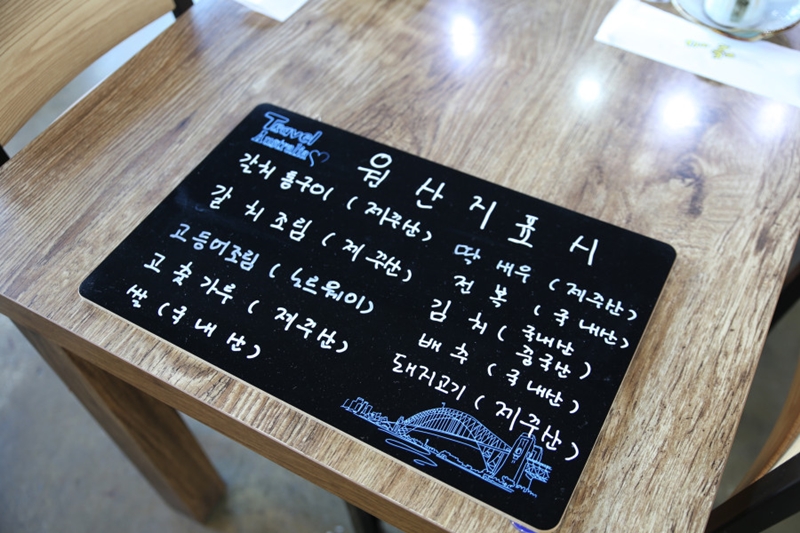 Travel
Australia
원산지표시
갈치통구이 (제주산)
갈치조림 (제주산)
고등어조림 (노르웨이)
고춧가루 (제주산)
쌀 (국내산)
딱새우 (제주산)
전복 (국내산)
김치 (국내산
중국산)
배추 (국내산)
돼지고기 (제주산)